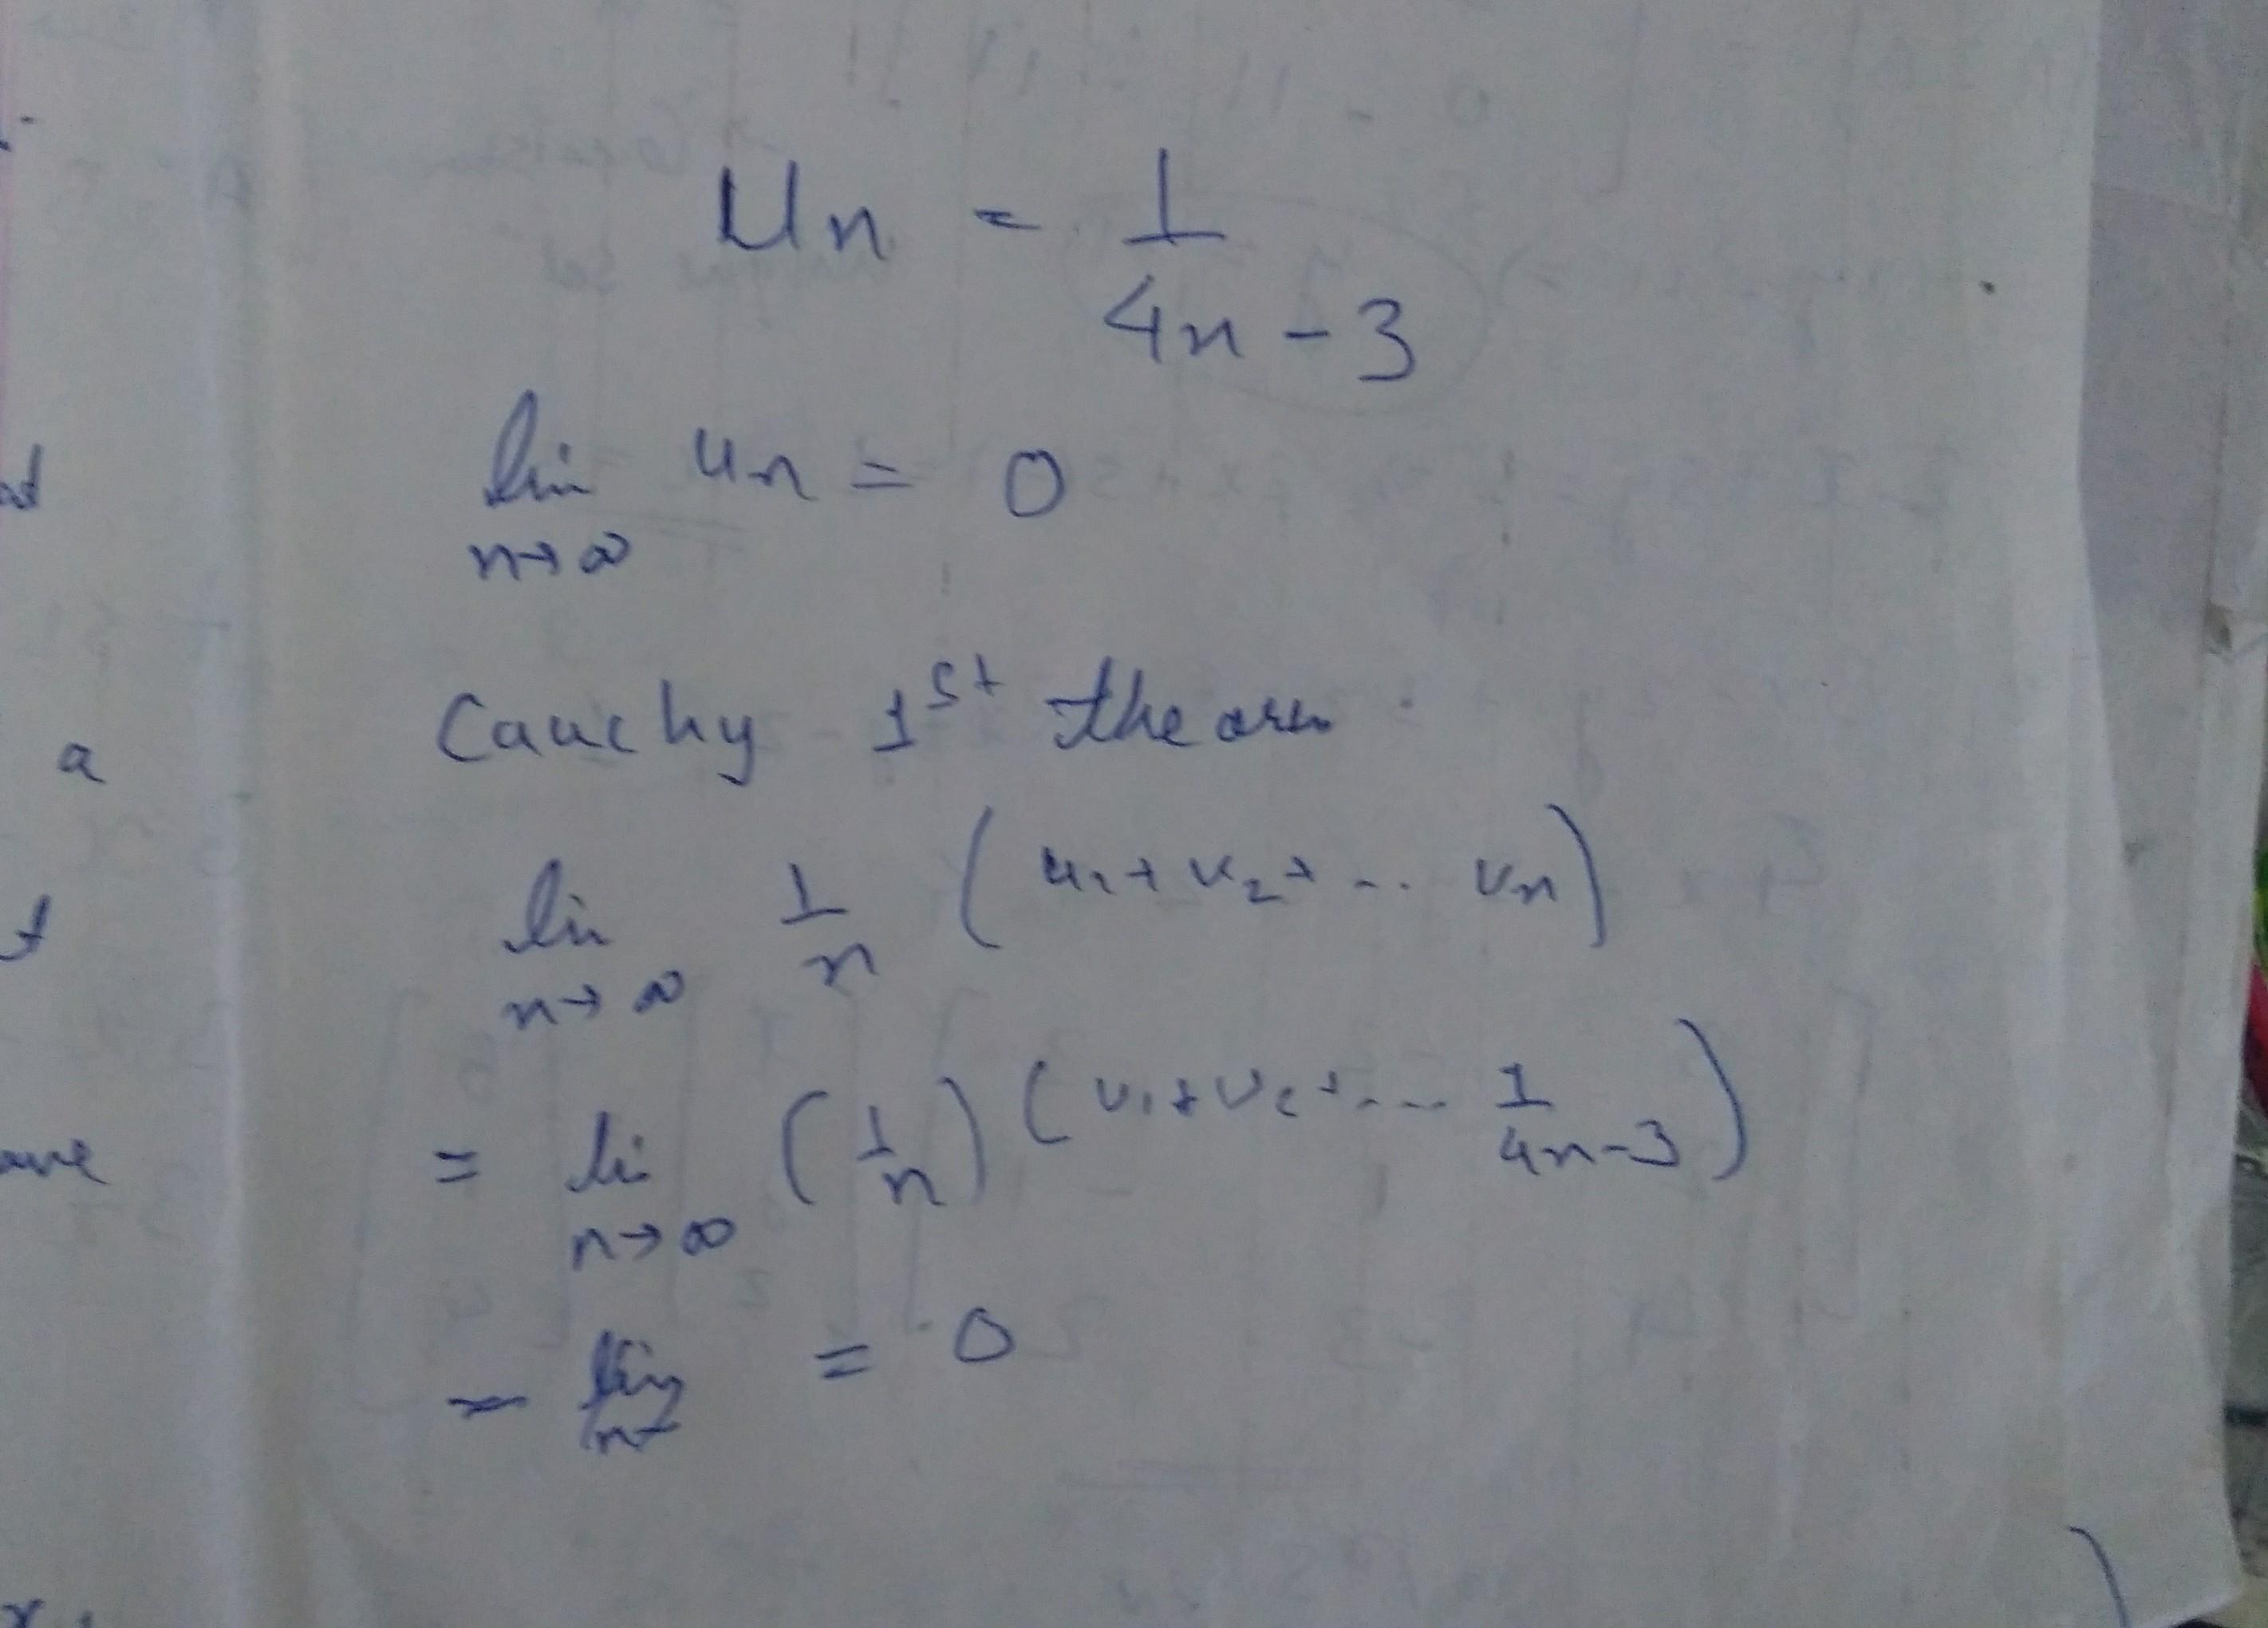 Un = 1/(4n-3)
lim n→∞ un = 0
Cauchy 1st theorem
lim n→∞ 1/n (u1+u2+... un)
= lim n→∞ (1/n) (u1+u2+.... 1/(4n-3))
= lim n→ = 0